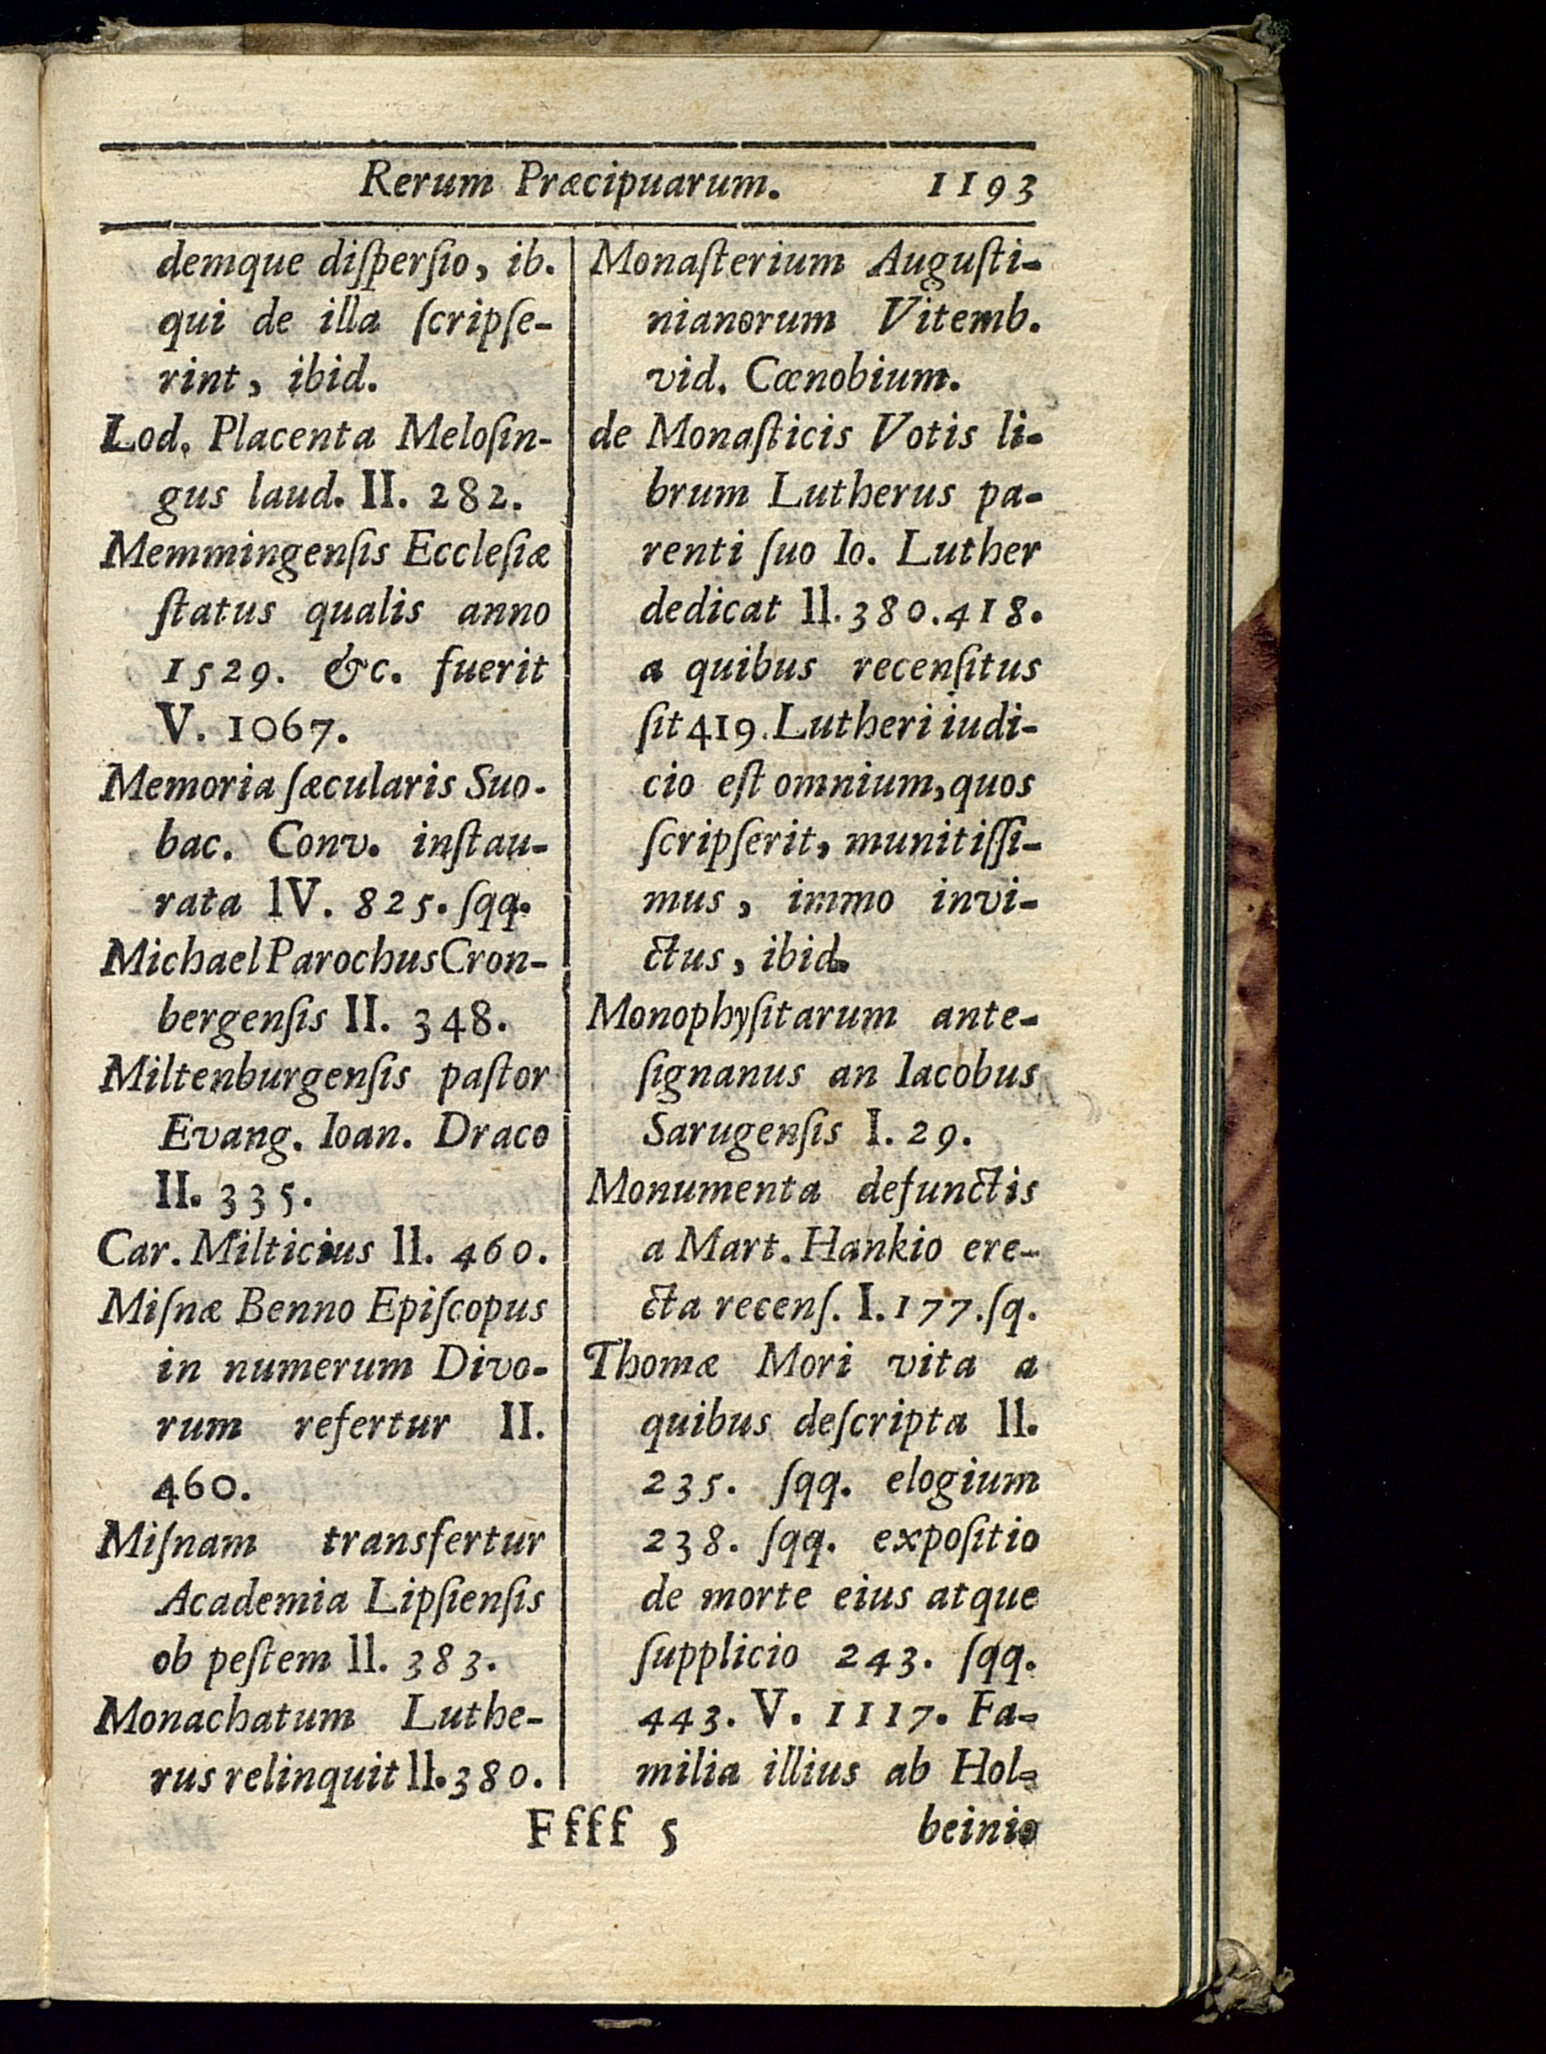 Rerum Præcipuarum. 1193
demque diſperſio, ib.
qui de illa ſcripſe-
rint, ibid.
Lod. Placenta Meloſin-
gus laud. II. 282.
Memmingenſis Eccleſiæ
ſtatus qualis anno
1529. &c. fuerit
V. 1067.
Memoria ſæcularis Suo-
bac. Conv. inſtau-
rata IV. 825. ſqq.
Michael Parochus Cron-
bergenſis II. 348.
Miltenburgenſis paſtor
Evang. Ioan. Draco
II. 335.
Car. Milticius II. 460.
Miſnæ Benno Epiſcopus
in numerum Divo-
rum refertur II.
460.
Miſnam transfertur
Academia Lipſienſis
ob peſtem II. 383.
Monachatum Luthe-
rus relinquit II. 380.
Monaſterium Auguſti-
nianorum Vitemb.
vid. Cœnobium.
de Monaſticis Votis li-
brum Lutherus pa-
renti ſuo Io. Luther
dedicat II. 380. 418.
a quibus recenſitus
ſit 419. Lutheri iudi-
cio eſt omnium, quos
ſcripſerit, munitiſſi-
mus, immo invi-
ctus, ibid.
Monophyſitarum ante-
ſignanus an Iacobus
Sarugenſis I. 29.
Monumenta defunctis
a Mart. Hankio ere-
cta recenſ. I. 177. ſq.
Thomæ Mori vita a
quibus deſcripta II.
235. ſqq. elogium
238. ſqq. expoſitio
de morte eius atque
ſupplicio 243. ſqq.
443. V. 1117. Fa-
milia illius ab Hol-
Ffff 5 beinio